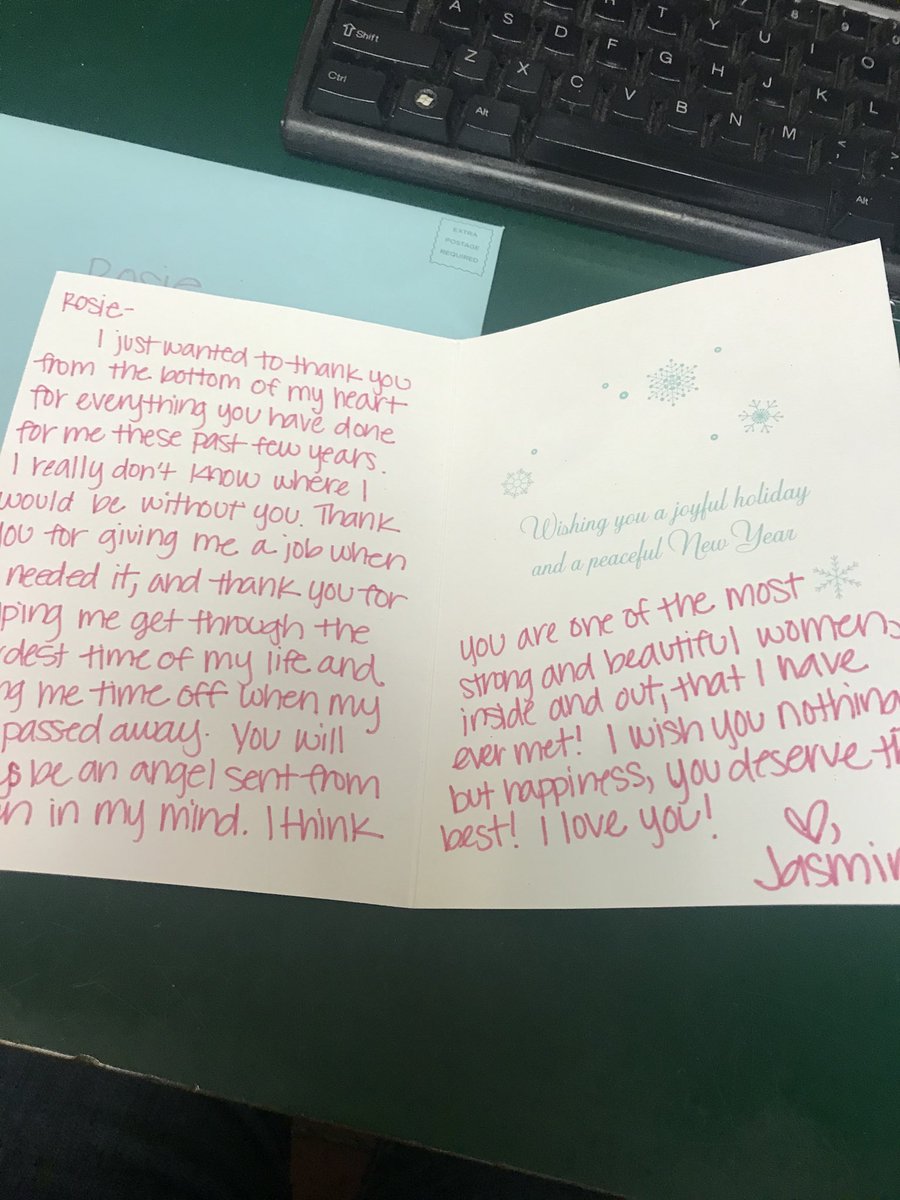 A
S
D
F
G
H
J
K
L
T
Y
U
I
O
Shift
Z
X
C
V
B
N
M
Ctrl
Alt
Alt
EXTRA
POSTAGE
REQUIRED
Rosie
Rosie-
I just wanted to thank you
from the bottom of my heart
for everything you have done
for me these past few years.
I really don't know where I
would be without you. Thank
you for giving me a job when
needed it, and thank you for
ping me get through the
dest time of my life and
ng me time off when my
passed away. You will
s be an angel sent from
n in my mind. I think
Wishing you a joyful holiday
and a peaceful New Year
you are one of the most
strong and beautiful women,
inside and out, that I have
ever met! I wish you nothing
but happiness, you deserve th
best! I love you!
♡,
Jasmin